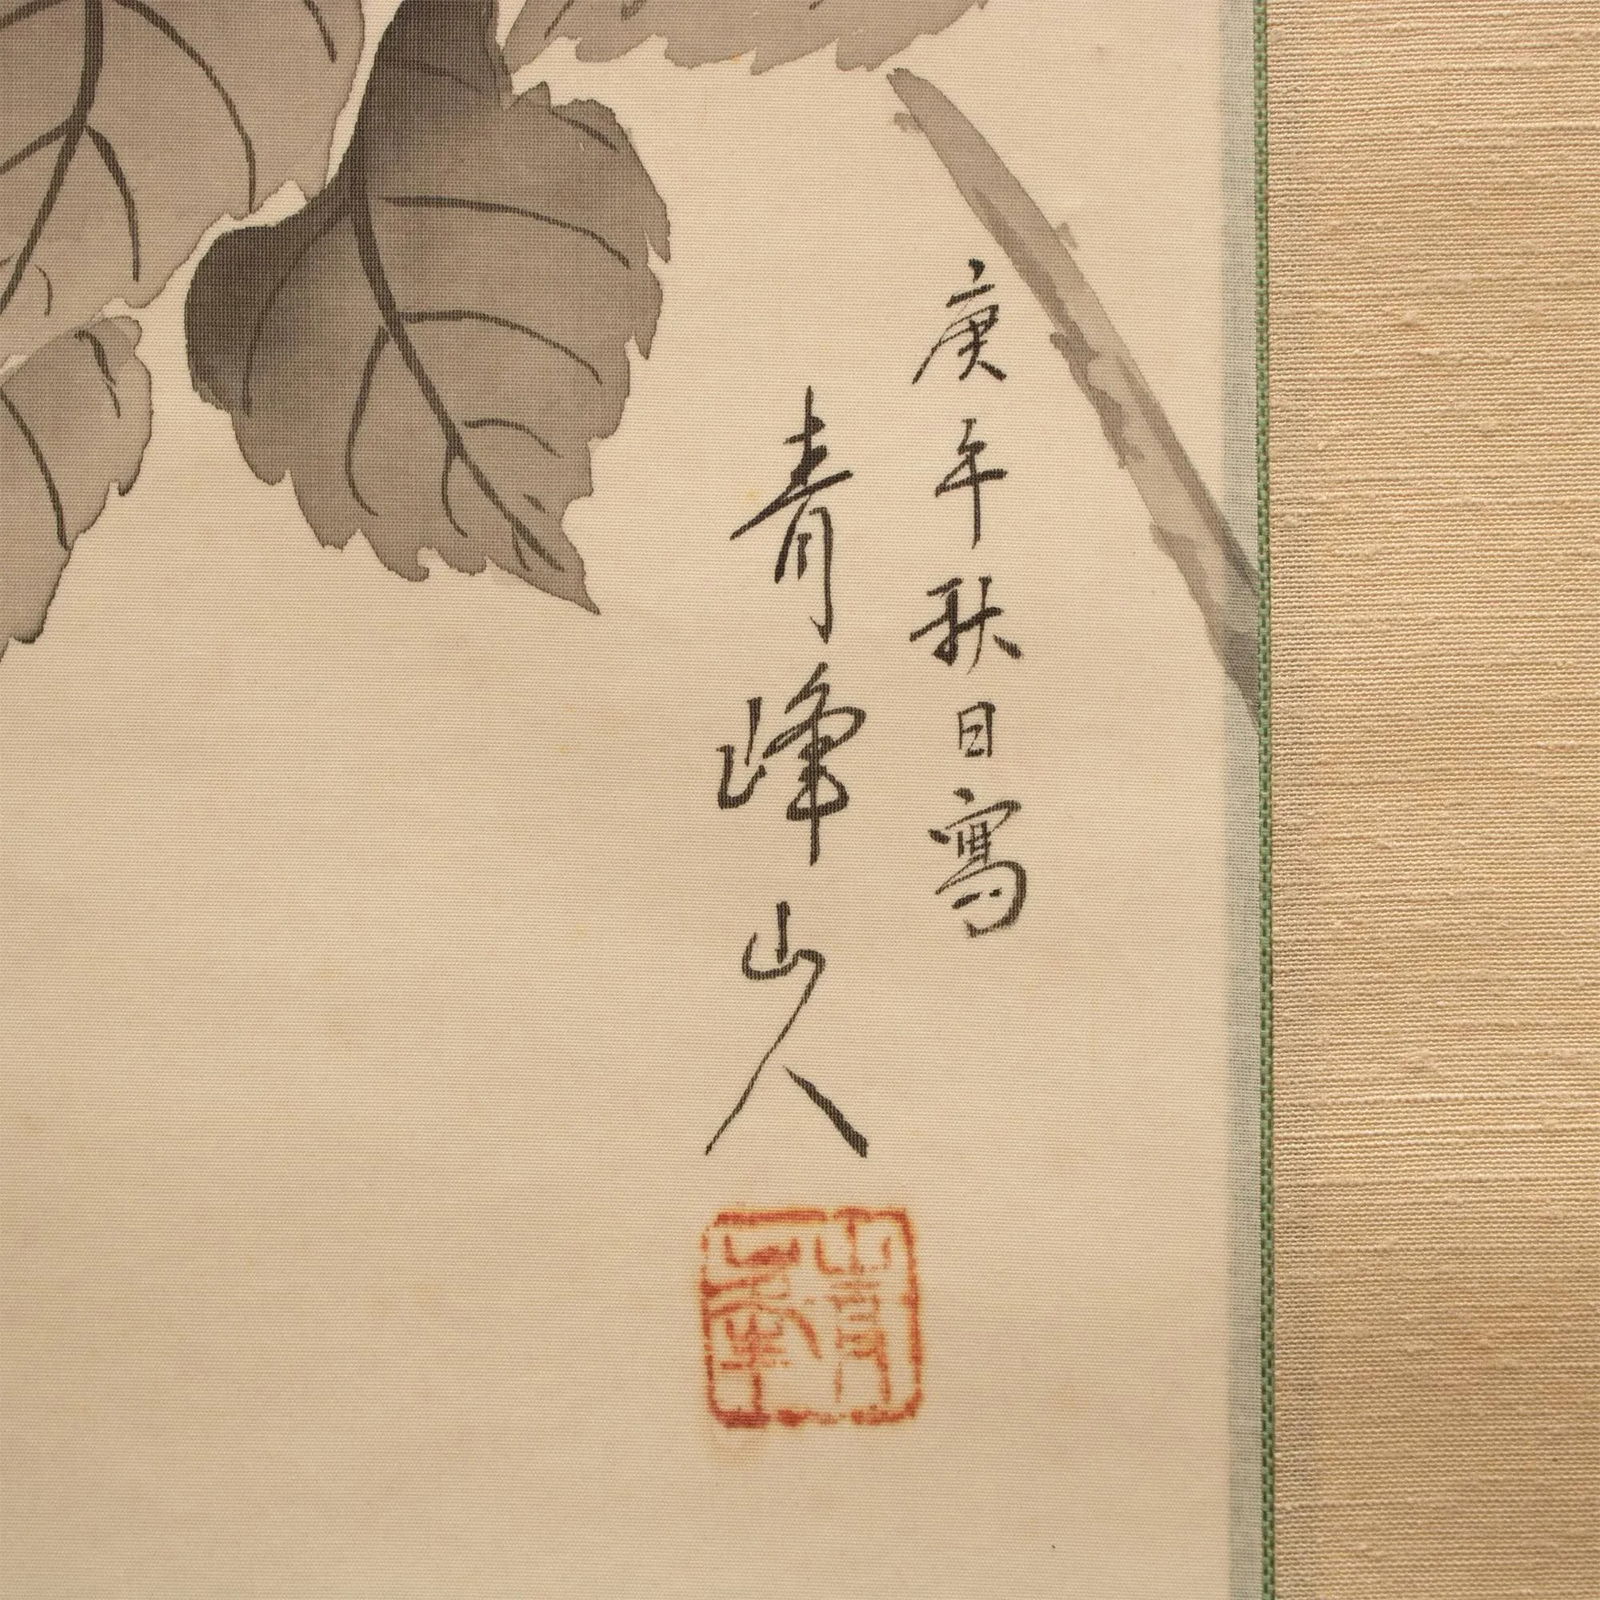 庚午秋日寫
青峰山人